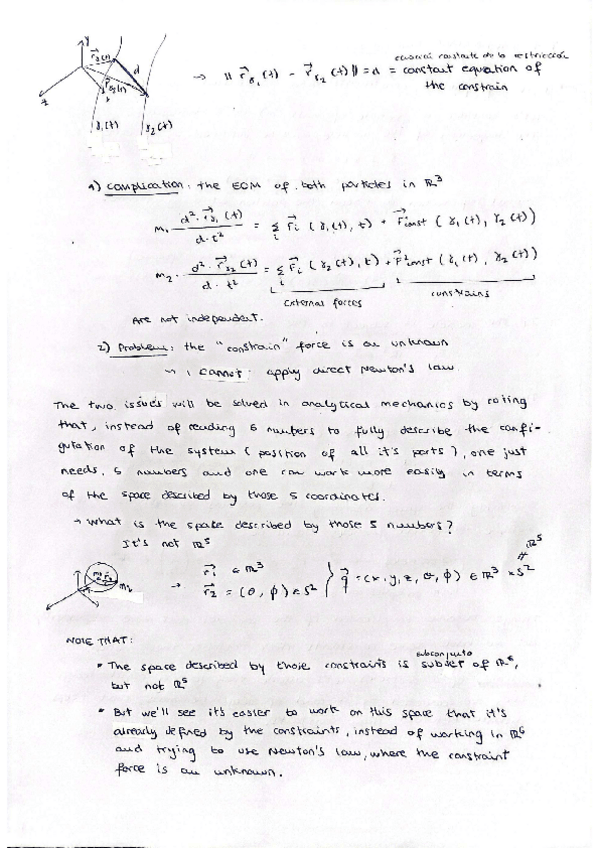 y
r⃗γ₁(t)
d
r⃗γ₂(t)
γ₁(t) γ₂(t)
ecuación constante de la restricción
→ || r⃗γ₁(t) - r⃗γ₂(t) || = d = constant equation of
the constrain
1) Complication: the EOM of both particles in ℝ³
m₁ d²·r⃗γ₁(t) / d·t² = Σᵢ F⃗ᵢ (γ₁(t), t) + F⃗¹const (γ₁(t), γ₂(t))
m₂· d²·r⃗γ₂(t) / d·t² = Σᵢ F⃗ᵢ (γ₂(t), t) + F⃗²const (γ₁(t), γ₂(t))
external forces constrains
Are not independent.
2) Problem: the "constrain" force is an unknown
I cannot apply direct Newton's law.
The two issues will be solved in analytical mechanics by
that, instead of 6 numbers to fully describe the confi-
guration of the system (position of all it's parts), one just
needs 5 numbers and one can work more easily in terms
of the space described by those 5 coordinates.
→ What is the space described by those 5 numbers?
It's not ℝ⁵
m₂
→ r⃗₁ ∈ ℝ³
r⃗₂ = (θ, ϕ) ∈ S² } q⃗ = (x, y, z, θ, ϕ) ∈ ℝ³ × S² ≠ ℝ⁵
NOTE THAT:
subconjunto
• The space described by those constraints is subset of ℝ⁶,
but not ℝ⁵
• But we'll see it's easier to work on this space that it's
already defined by the constraints, instead of working in ℝ⁶
and trying to use Newton's law, where the constraint
force is an unknown.